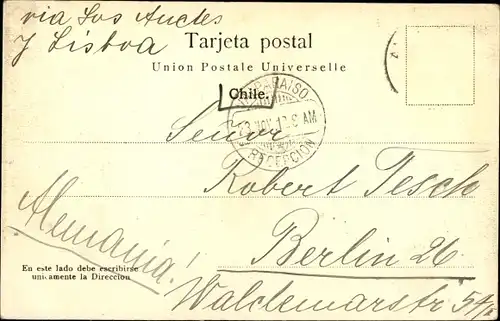 via Los Andes
y Lisboa
Tarjeta postal
Union Postale Universelle
VALPARAISO
Chile.
NOV
AM
RECEPCION
Senor
Robert Tesch
Alemania!
Berlin 26
En este lado debe escribirse
unicamente la Direccion
Waldemarstr 54